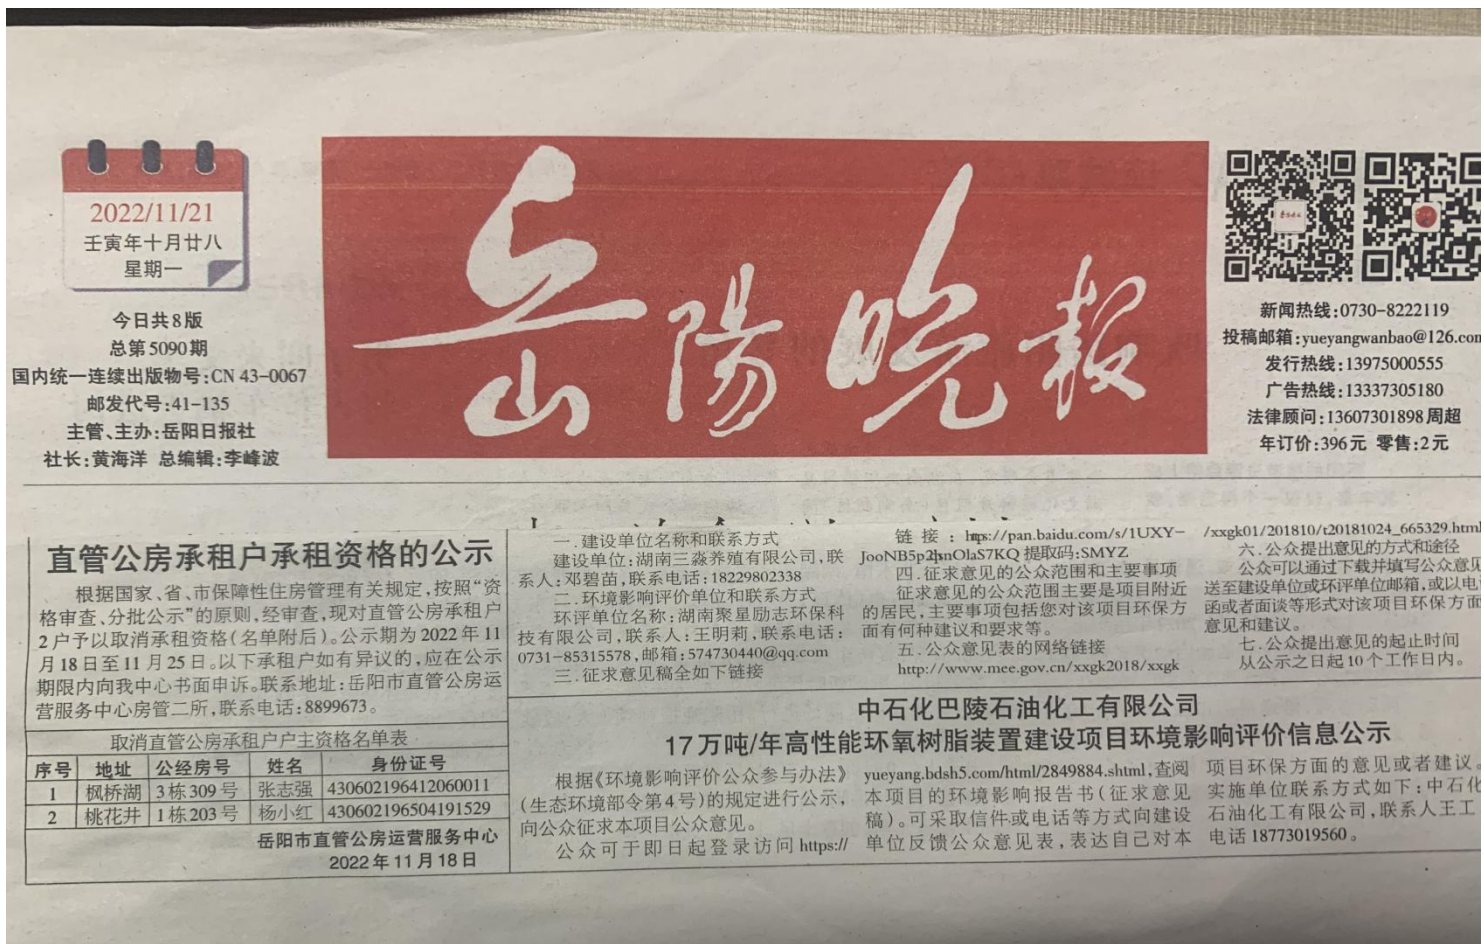 2022/11/21
壬寅年十月廿八
星期一
今日共8版
总第5090期
国内统一连续出版物号:CN 43-0067
邮发代号:41-135
主管、主办:岳阳日报社
社长:黄海洋 总编辑:李峰波
岳陽晚報
新闻热线:0730-8222119
投稿邮箱:yueyangwanbao@126.com
发行热线:13975000555
广告热线:13337305180
法律顾问:13607301898周超
年订价:396元 零售:2元
直管公房承租户承租资格的公示
根据国家、省、市保障性住房管理有关规定,按照“资
格审查、分批公示”的原则,经审查,现对直管公房承租户
2户予以取消承租资格(名单附后)。公示期为2022年11
月18日至11月25日。以下承租户如有异议的,应在公示
期限内向我中心书面申诉。联系地址:岳阳市直管公房运
营服务中心房管二所,联系电话:8899673。
取消直管公房承租户户主资格名单表
序号 地址 公经房号 姓名 身份证号
1 枫桥湖 3栋309号 张志强 430602196412060011
2 桃花井 1栋203号 杨小红 430602196504191529
岳阳市直管公房运营服务中心
2022年11月18日
一.建设单位名称和联系方式
建设单位:湖南三淼养殖有限公司,联
系人:邓碧苗,联系电话:18229802338
二.环境影响评价单位和联系方式
环评单位名称:湖南聚星励志环保科
技有限公司,联系人:王明莉,联系电话:
0731-85315578,邮箱:574730440@qq.com
三.征求意见稿全如下链接
链接:https://pan.baidu.com/s/1UXY-
JooNB5p2hsnOlaS7KQ 提取码:SMYZ
四.征求意见的公众范围和主要事项
征求意见的公众范围主要是项目附近
的居民,主要事项包括您对该项目环保方
面有何种建议和要求等。
五.公众意见表的网络链接
http://www.mee.gov.cn/xxgk2018/xxgk
/xxgk01/201810/t20181024_665329.html
六.公众提出意见的方式和途径
公众可以通过下载并填写公众意见
送至建设单位或环评单位邮箱,或以电
函或者面谈等形式对该项目环保方面
意见和建议。
七.公众提出意见的起止时间
从公示之日起10个工作日内。
中石化巴陵石油化工有限公司
17万吨/年高性能环氧树脂装置建设项目环境影响评价信息公示
根据《环境影响评价公众参与办法》
(生态环境部令第4号)的规定进行公示,
向公众征求本项目公众意见。
公众可于即日起登录访问https://
yueyang.bdsh5.com/html/2849884.shtml,查阅
本项目的环境影响报告书(征求意见
稿)。可采取信件或电话等方式向建设
单位反馈公众意见表,表达自己对本
项目环保方面的意见或者建议。
实施单位联系方式如下:中石化
石油化工有限公司,联系人王工
电话18773019560。